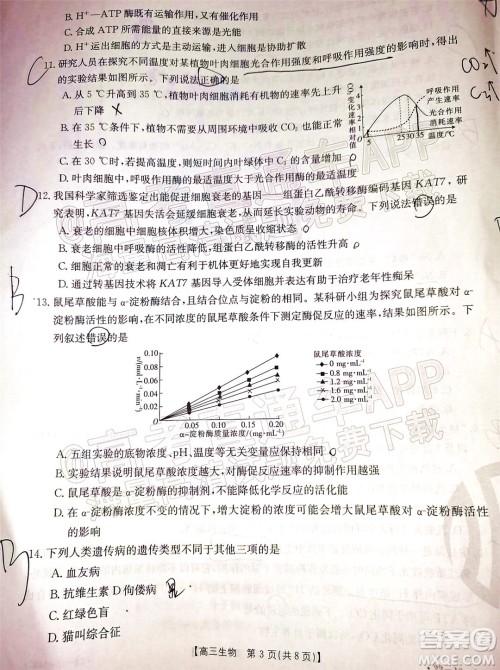 B. H⁺—ATP 酶既有运输作用,又有催化作用
C. 合成 ATP 所需能量的直接来源是光能
D. H⁺ 运出细胞的方式是主动运输,运入细胞是被协助扩散
11. 研究人员在探究不同温度对某植物叶肉细胞光合作用强度和呼吸作用强度的影响时,得出
的实验结果如图所示。下列说法正确的是
A. 从 5℃ 升高到 35℃,植物叶肉细胞消耗有机物的速率先上升
后下降
B. 在 35℃ 条件下,植物不需要从周围环境中吸收 CO₂ 也能正常
生长
C. 若突然增加光照,则短时间内叶绿体中 C₅ 的含量增加
D. 呼吸作用酶的最适温度大于光合作用酶的最适温度
CO₂变化速率相对值
4
3
2
1
0
5
25
30
35
温度/℃
呼吸作用
产生速率
光合作用
消耗速率
CO₂
C
12. 我国科学家筛选鉴定出能促进细胞衰老的基因——组蛋白乙酰转移酶编码基因 KAT7,研
究表明,KAT7 基因失活会延缓细胞衰老,从而延长实验动物的寿命。下列说法错误的是
D
A. 衰老的细胞中细胞核体积增大、染色质会出现收缩
B. 衰老细胞中呼吸酶的活性下降,组蛋白乙酰转移酶的活性升高
C. 细胞衰老和凋亡有利于机体更好地实现自我更新
D. 通过转基因技术将 KAT7 基因导入衰老细胞并表达有助于治疗老年性痴呆
13. 鼠尾草酸能与 α-淀粉酶结合,且结合位点与淀粉的不同。某科研小组为探究鼠尾草酸对 α-
淀粉酶活性的影响,在不同浓度的鼠尾草酸条件下测定酶促反应的速率,结果如图所示。下
列叙述错误的是
B
0.10
0.08
0.06
0.04
0.02
0.00
0.05
0.10
0.15
0.20
α-淀粉酶质量浓度/(mg·mL⁻¹)
鼠尾草酸浓度
0 mg·mL⁻¹
0.8 mg·mL⁻¹
1.2 mg·mL⁻¹
1.6 mg·mL⁻¹
2.0 mg·mL⁻¹
A. 五组实验的底物浓度、pH、温度等无关变量均要保持一致
B. 实验结果说明鼠尾草酸浓度越大,对酶促反应速率的抑制作用越强
C. 鼠尾草酸是 α-淀粉酶的抑制剂,不能降低化学反应的活化能
D. 在 α-淀粉酶浓度不变的情况下,增大淀粉的浓度可消除鼠尾草酸对 α-淀粉酶活性
的影响
14. 下列人类遗传病的遗传类型不同于其他三项的是
B
A. 血友病
B. 抗维生素 D 佝偻病
C. 红绿色盲
D. 猫叫综合征
【高三生物 第 3 页(共 8 页)】